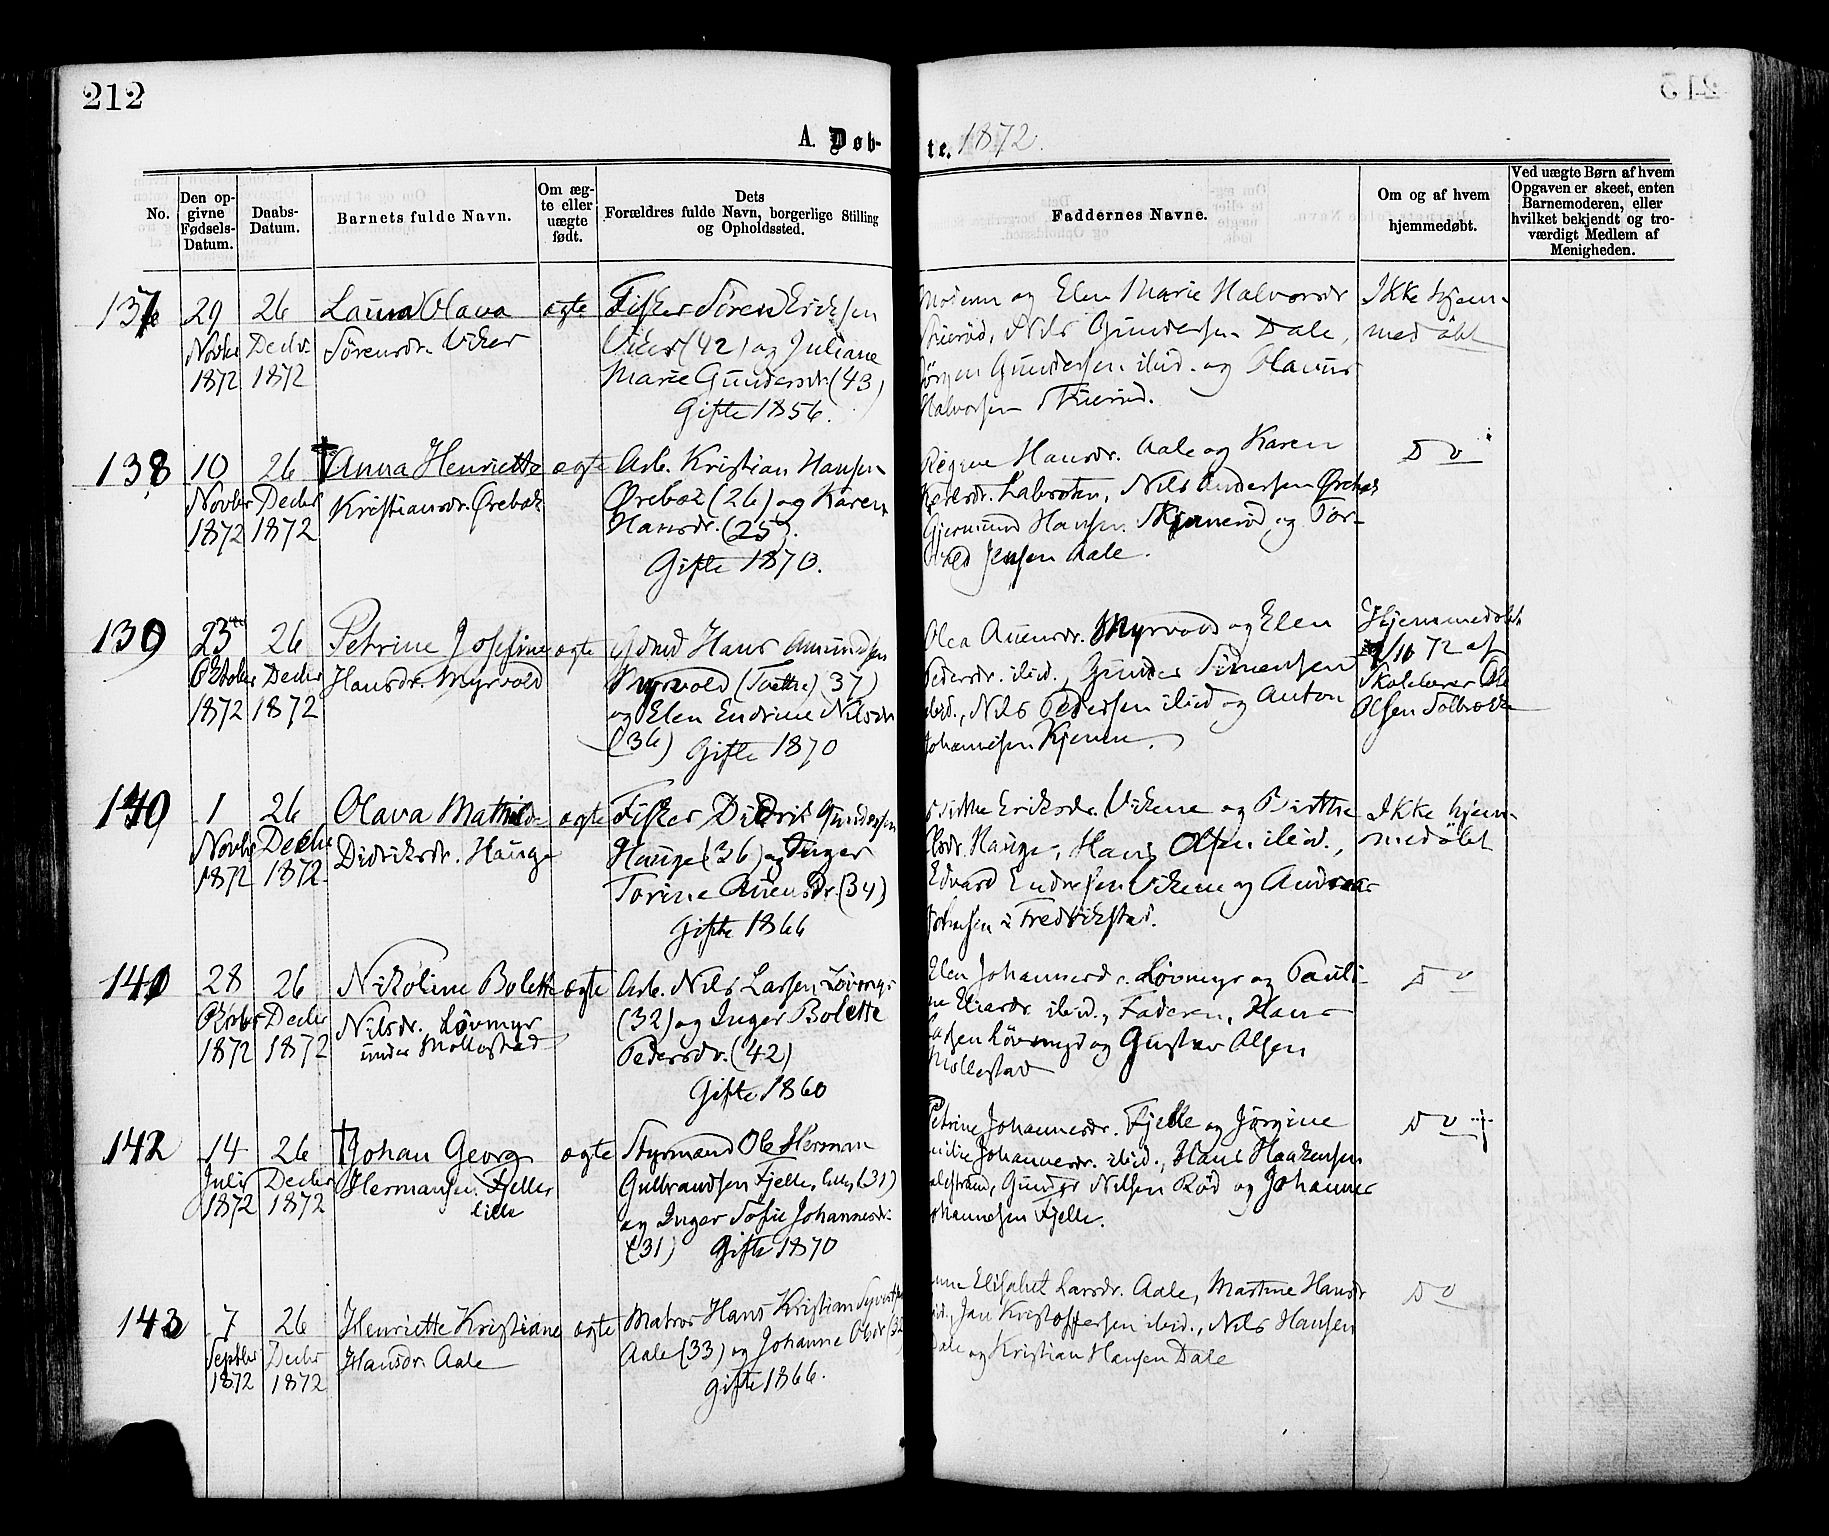 212
A. Døb-
te. 1872.
No.
Den op-
givne
Fødsels-
Datum.
Daabs-
Datum.
Barnets fulde Navn.
Om æg-
te eller
uægte
født.
Dets
Forældres fulde Navn, borgerlige Stilling
og Opholdssted.
Faddernes Navne.
Om og af hvem
hjemmedøbt.
Ved uægte Børn af hvem
Opgaven er skeet, enten
Barnemoderen, eller
hvilket bekjendt og tro-
værdigt Medlem af
Menigheden.
137
29
Novbr
1872
26
Decbr
1872
Laura Olava
Sørensdr. Viker
ægte
Fisker Søren Eriksen
Viker (42) og Juliane
Marie Gundersdr. (43)
Gifte 1856.
Moderen og Elen Marie Halvorsdr
Skierød, Nils Gundersen Dale,
Jørgen Gundersen ibid. og Olavus
Halvorsen Skierød.
Ikke hjem-
medøbt
138
10
Novbr
1872
26
Decbr
1872
† Anna Henriette
Kristiansdr. Ørebæk
ægte
Arb. Kristian Hansen
Ørebæk (26) og Karen
Hansdr. (25).
Gifte 1870.
Regine Hansdr. Aale og Karen
Nils Andersen Ørebæk
Gjermund Hansen Skjennerød og Tor-
vald Jensen Aale.
Do
139
23
Oktober
1872
26
Decbr
1872
Petrine Josefine
Hansdr. Myrvold
ægte
Hans Amundsen
Myrvold (37)
og Elen Endrine Nilsdr
(36) Gifte 1870
Olea Auensdr. Myrvold og Elen
Pedersdr. ibid., Gunder Simensen
ibid., Nils Pedersen ibid og Anton
Johannesen Kjenen.
Hjemmedøbt
72 af
Skolelærer Ole
Olsen
140
1
Novbr
1872
26
Decbr
1872
Olava Mathilde
Didriksdr. Hauge
ægte
Fisker Didrik Gundersen
Hauge (36) og Inger
Torine Auensdr. (34)
Gifte 1866
Birthe Eriksdr. Vikene og Birthe
Olsdr. Hauge, Hans Olsen ibid.,
Edvard Endresen Vikene og Andreas
Johnsen i Fredrikstad.
Ikke hjem-
medøbt
141
28
Oktbr
1872
26
Decbr
1872
Nikoline Bolette
Nilsdr. Løvmyr
under Møllestad
ægte
Arb. Nils Larsen Løvmyr
(32) og Inger Bolette
Pedersdr. (42)
Gifte 1860
Elen Johannesdr. Løvmyr og Pauli-
ne ibid., Faderen, Hans
Larsen Løvmyr og Gustav Olsen
Møllestad
Do
142
14
Juli
1872
26
Decbr
1872
† Johan Georg
Hermansen Fjelle
lille
ægte
Styrmand Ole Herman
Gulbrandsen Fjelle lille (31)
og Inger Sofie Johannesdr.
(31) Gifte 1870
Petrine Johannesdr. Fjelle og Jørgine
Emilie Johannesdr. ibid., Hans Haakensen
Gunder Nilsen Rød og Johannes
Johannesen Fjelle.
Do
143
7
Septbr
1872
26
Decbr
1872
Henriette Kristiane
Hansdr. Aale
ægte
Matros Hans Kristian
Aale (33) og Johanne Olsdr (32)
Gifte 1866.
Anne Elisabet Larsdr. Aale, Martine Hansdr
ibid., Jan Kristoffersen ibid., Nils Hansen
Dale og Kristian Hansen Dale
Do